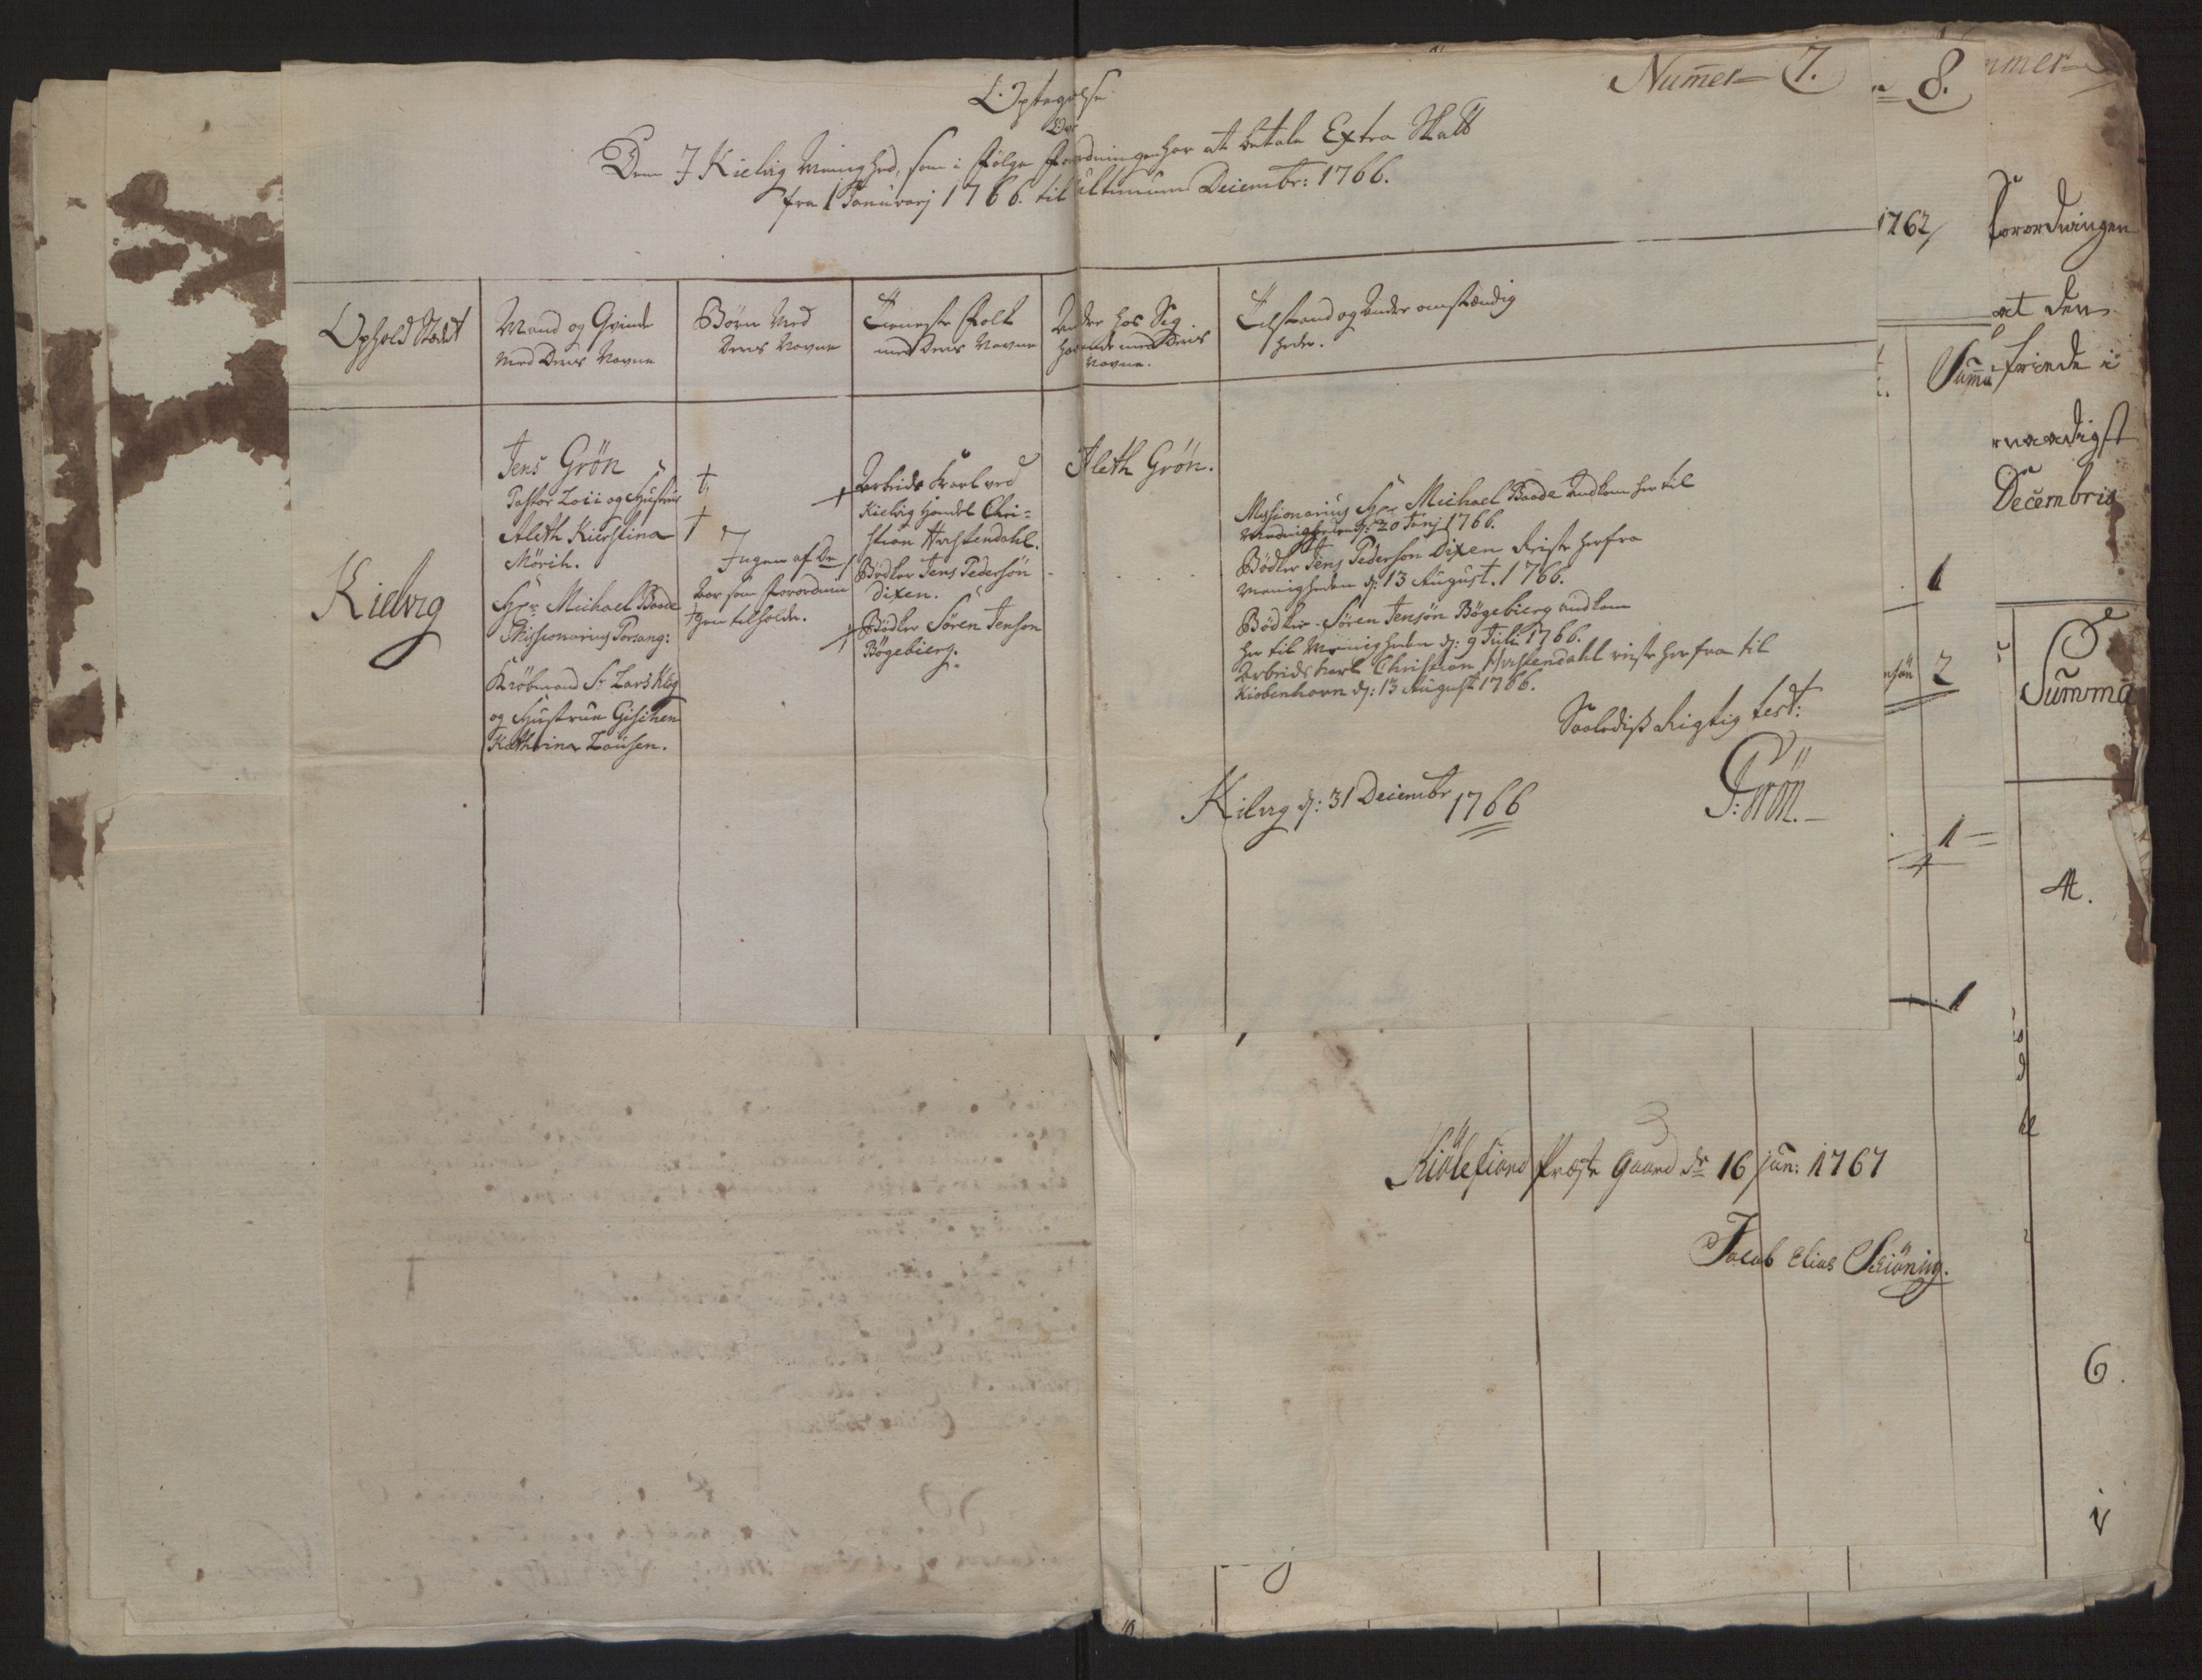 Numer 7.
Optegelse
Over
Dem J Kielvig Menighed, som i Følge Forordningen har at betale Extra Skatt
fra 1 Januarj 1766. til ultimum Decembr: 1766.
Ophold Stædet
Mand og Qvinde
med Deris Navne
Børn Med
Deris Navne
Tieneste Folk
med Deris Navne
Andre hos Sig
havende med Deris
Navne.
Tilstand og Andre omstændig
heder.
Kielvig
Jens Grön
Pastor Loci og Hustrue
Aleth Kierstina
Mörch.
Hr. Michael Baade
Missionarius Porsang:
Kiöbmand Sr. Lars Klög
og Hustrue Gitichen
Kathrina Lousen.
†
†
Ingen af De
Aar som Forordnin
gen tilholder.
Arbeids Karl ved
Kielvig Handel Chri-
stian Hastendahl.
Bödker Jens Pedersön
Dixen.
Bödker Sören Jenson
Bögebierg.
Aleth Grön.
Missionarius Hr. Michael Baade Andkom her til
Menigheden d: 20 Janj 1766.
Bödker Jens Pederson Dixen Reiste herfra
Menigheden d: 13 August. 1766.
Bödker Sören Jensön Bögebierg andkom
her til Menigheden d: 9 Juli 1766.
Arbeids Karl Christian Hastendahl reiste herfra til
Kiøbenhavn d: 13 August 1766.
Saaledis Rigtig test:
Kilvig d: 31 Decembr 1766
J: Grön.
8.
1762
Summa
1
nsön 2
1
1
mmer
Forordningen
at den
friede i
rnaadigst
Decembris
Summa
4.
6.
Kiölefiord Præste Gaard d. 16 Jan: 1767
Jacob Elias Schiöning.